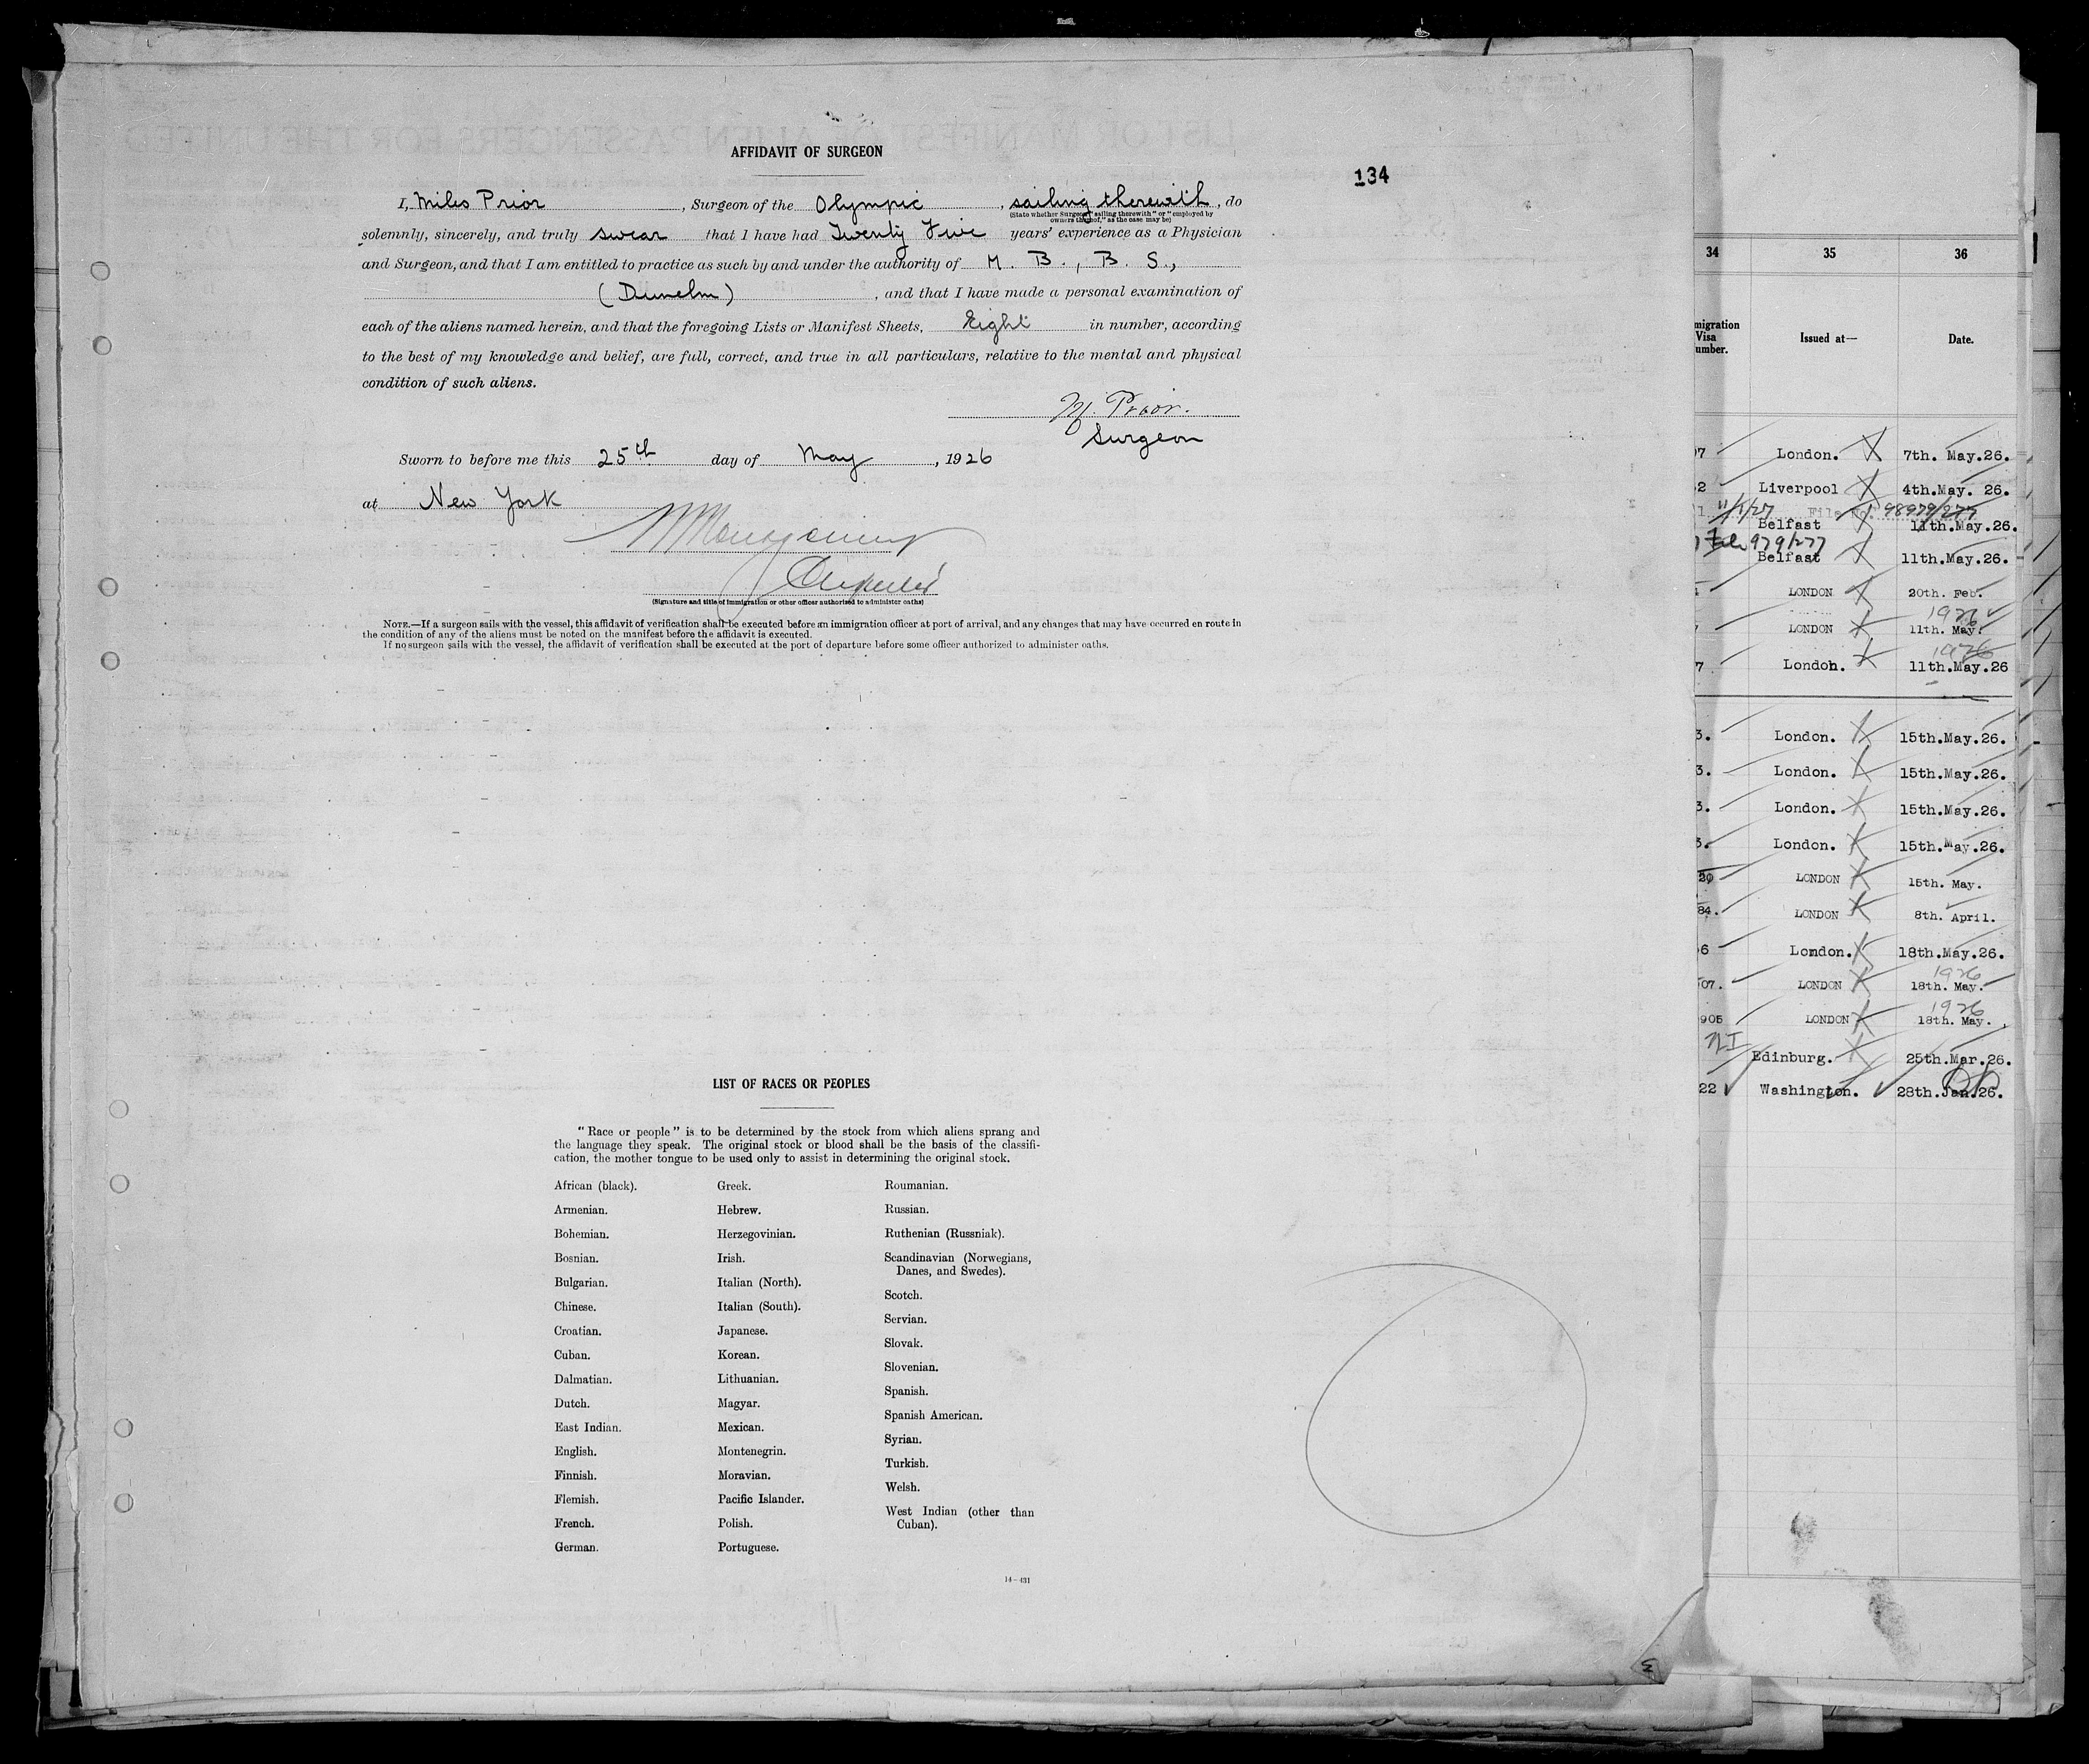 AFFIDAVIT OF SURGEON
134
I, Miles Prior, Surgeon of the Olympic, sailing therewith, do
(State whether Surgeon "sailing therewith" or "employed by
owners thereof," as the case may be)
solemnly, sincerely, and truly swear that I have had Twenty Five years' experience as a Physician
and Surgeon, and that I am entitled to practice as such by and under the authority of M. B., B. S.,
(Dunelm), and that I have made a personal examination of
each of the aliens named herein, and that the foregoing Lists or Manifest Sheets, Eight in number, according
to the best of my knowledge and belief, are full, correct, and true in all particulars, relative to the mental and physical
condition of such aliens.
M. Prior.
Surgeon
Sworn to before me this 25th day of May, 1926
at New York
(Signature and title of immigration or other officer authorized to administer oaths)
NOTE.—If a surgeon sails with the vessel, this affidavit of verification shall be executed before an immigration officer at port of arrival, and any changes that may have occurred en route in
the condition of any of the aliens must be noted on the manifest before the affidavit is executed.
If no surgeon sails with the vessel, the affidavit of verification shall be executed at the port of departure before some officer authorized to administer oaths.
LIST OF RACES OR PEOPLES
"Race or people" is to be determined by the stock from which aliens sprang and
the language they speak. The original stock or blood shall be the basis of the classifi-
cation, the mother tongue to be used only to assist in determining the original stock.
African (black).
Armenian.
Bohemian.
Bosnian.
Bulgarian.
Chinese.
Croatian.
Cuban.
Dalmatian.
Dutch.
East Indian.
English.
Finnish.
Flemish.
French.
German.
Greek.
Hebrew.
Herzegovinian.
Irish.
Italian (North).
Italian (South).
Japanese.
Korean.
Lithuanian.
Magyar.
Mexican.
Montenegrin.
Moravian.
Pacific Islander.
Polish.
Portuguese.
Roumanian.
Russian.
Ruthenian (Russniak).
Scandinavian (Norwegians,
Danes, and Swedes).
Scotch.
Servian.
Slovak.
Slovenian.
Spanish.
Spanish American.
Syrian.
Turkish.
Welsh.
West Indian (other than
Cuban).
14—431
34 35 36
migration
Visa
umber.
Issued at—
Date.
7 London. 7th. May.26.
2 Liverpool 4th.May. 26.
11/1/27 File No. 98979/277
Belfast 11th.May.26.
File 979/277
Belfast 11th.May.26.
LONDON 20th. Feb.
1926
7 LONDON 11th. May.
1926
7 London. 11th.May.26
3. London. 15th.May.26.
3. London. 15th.May.26.
3. London. 15th.May.26.
3. London. 15th.May.26.
20 LONDON 15th. May.
84. LONDON 8th. April.
6 London. 18th.May.26.
1926
07. LONDON 18th. May.
1926
905 LONDON 18th. May.
Edinburg. 25th.Mar.26.
22 Washington. 28th.Jan.26.